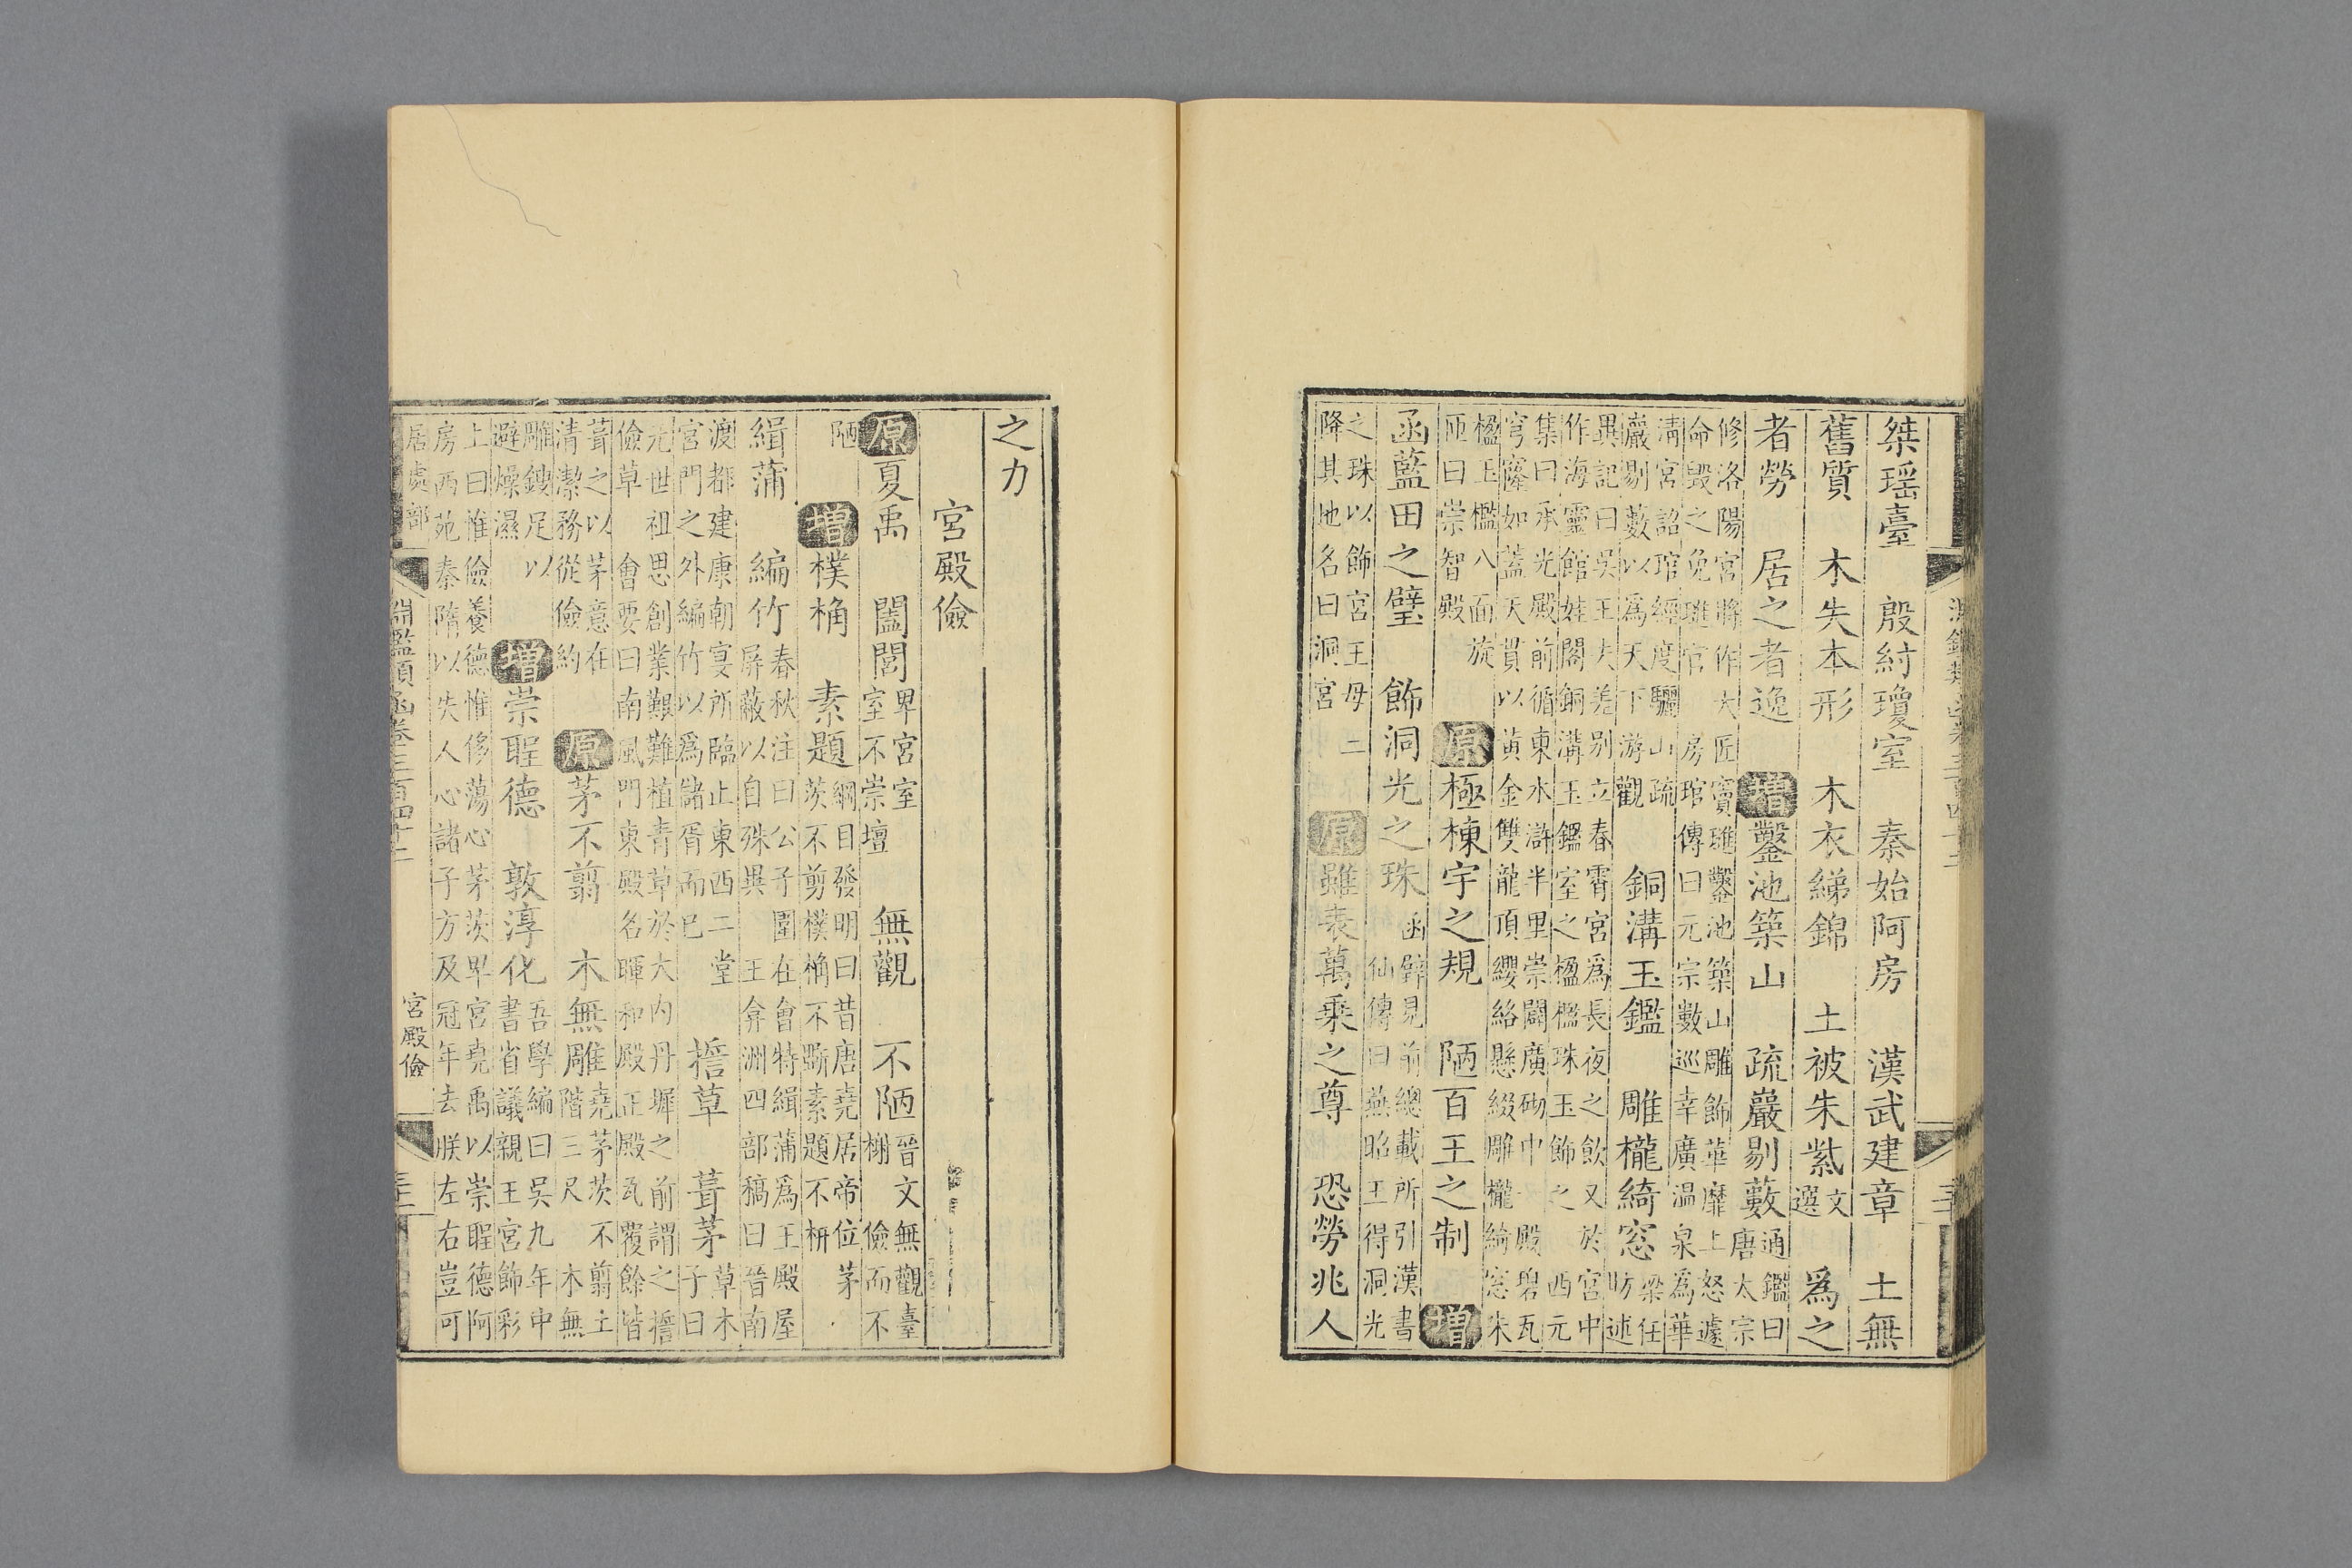 桀瑶臺 殷紂瓊室 秦始阿房 漢武建章 土無
舊質 木失本形 木衣綈錦 土被朱紫文選 為之
者勞 居之者逸 增鑿池築山 疏巖剔藪通鑑曰唐太宗
修洛陽宮將作大匠竇璡鑿池築山雕飾華靡上怒遽
命毀之免璡官 房琯傳曰元宗數巡幸廣溫泉為華
清宮詔琯經度驪山疏
巖剔藪以為天下游觀 銅溝玉鑑 雕櫳綺窓梁任昉述
異記曰吳王夫差别立春霄宮為長夜之飲又於宮中
作海靈館娃閣銅溝玉鑑室之楹櫺珠玉飾之 西元
集曰承光殿前循東水滸半里崇闢廣砌中一殿碧瓦
穹窿如蓋天貫以黃金雙龍頂纓絡懸綴雕櫳綺窓朱
楹玉檻八面旋
匝曰崇智殿 原極棟宇之規 陋百王之制 增
函藍田之璧 飾洞光之珠函璧見前總載所引漢書 仙傳曰燕昭王得洞光
之珠以飾宮王母二
降其地名曰洞宮 原雖表萬乘之尊 恐勞兆人
之力
宮殿儉
原夏禹 闔閭卑宮室 室不崇壇 無觀 不陋晉文無觀臺榭 儉而不
陋 增樸桷 素題綱目發明曰昔唐堯居帝位茅茨不剪樸桷不斲素題不枅
緝蒲 編竹春秋注曰公子圍在會特緝蒲為王殿屋屏蔽以自殊異 王弇洲四部稿曰晉南
渡都建康朝宴所臨止東西二堂
宮門之外編竹以為儲胥而已 擔草 葺茅草木子曰
元世祖思創業艱難植青草於大内丹墀之前謂之擔
儉草 會要曰南風門東殿名暉和殿正殿瓦覆餘皆
葺之以茅意在
清潔務從儉約 原茅不翦 木無雕堯茅茨不翦土階三尺 木無
雕鎪足以
避燥濕 增崇聖德 敦淳化吾學編曰吳九年中書省議親王宮飾彩
上曰惟儉養德惟侈蕩心茅茨卑宮堯禹以崇聖德阿
房西苑秦隋以失人心諸子方及冠年去朕左右豈可
居處部 淵鑑類函卷三百四十二 宮殿儉